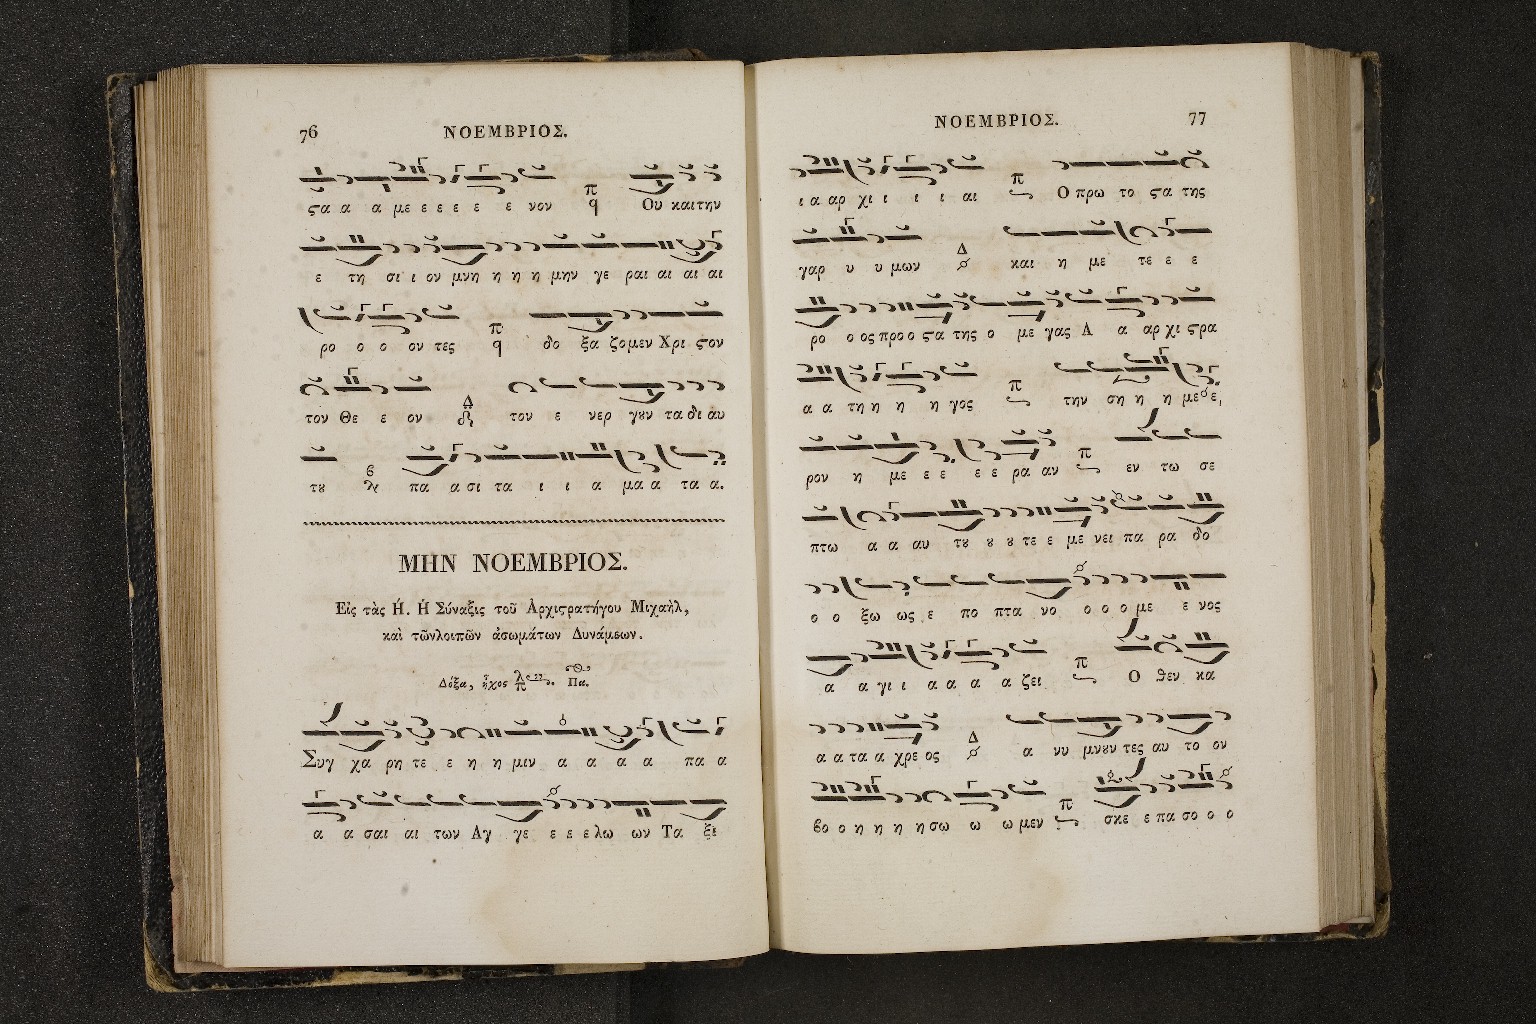 76 ΝΟΕΜΒΡΙΟΣ.
ϛα α α με ε ε ε ε ε νον π q Ου και την
ε τη σι ι ον μνη η η η μην γε ραι αι αι αι
ρο ο ο ον τες π q δο ξα ζομεν Χρι ϛον
τον Θε ε ον Δ τον ε νερ γȣν τα δι αυ
τȣ β πα α σι τα ι ι α μα α τα α.
ΜΗΝ ΝΟΕΜΒΡΙΟΣ.
Εἰς τὰς Η΄. Η Σύναξις τοῦ Ἀρχιϛρατήγου Μιχαὴλ,
καὶ τῶνλοιπῶν ἀσωμάτων Δυνάμεων.
Δόξα, ἦχος λ π Πα.
Συγ χα ρη τε ε η η μιν α α α α πα α
α α σαι αι των Αγ γε ε ε ε λω ων Τα ξι
ΝΟΕΜΒΡΙΟΣ. 77
ι α αρ χι ι ι ι αι π Ο πρω το ϛα της
γαρ υ υ μων Δ και η με τε ε ε
ρο ο ος προ ο ϛα της ο με γας Α α αρ χι ϛρα
α α τη η η η γος π την ση η η με ε,
ρον η με ε ε ε ε ρα αν π εν τω σε
πτω α α αυ τȣ ȣ ȣ τε ε με νει πα ρα δο
ο ο ξω ως ε πο πτα νο ο ο ο με ε νος
α α γι ι α α α α ζει π Ο θεν κα
α α τα α χρε ος Δ α νυ μνȣν τες αυ το ον
βο ο η η η η σω ω ω μεν π σκε ε πα σο ο ο